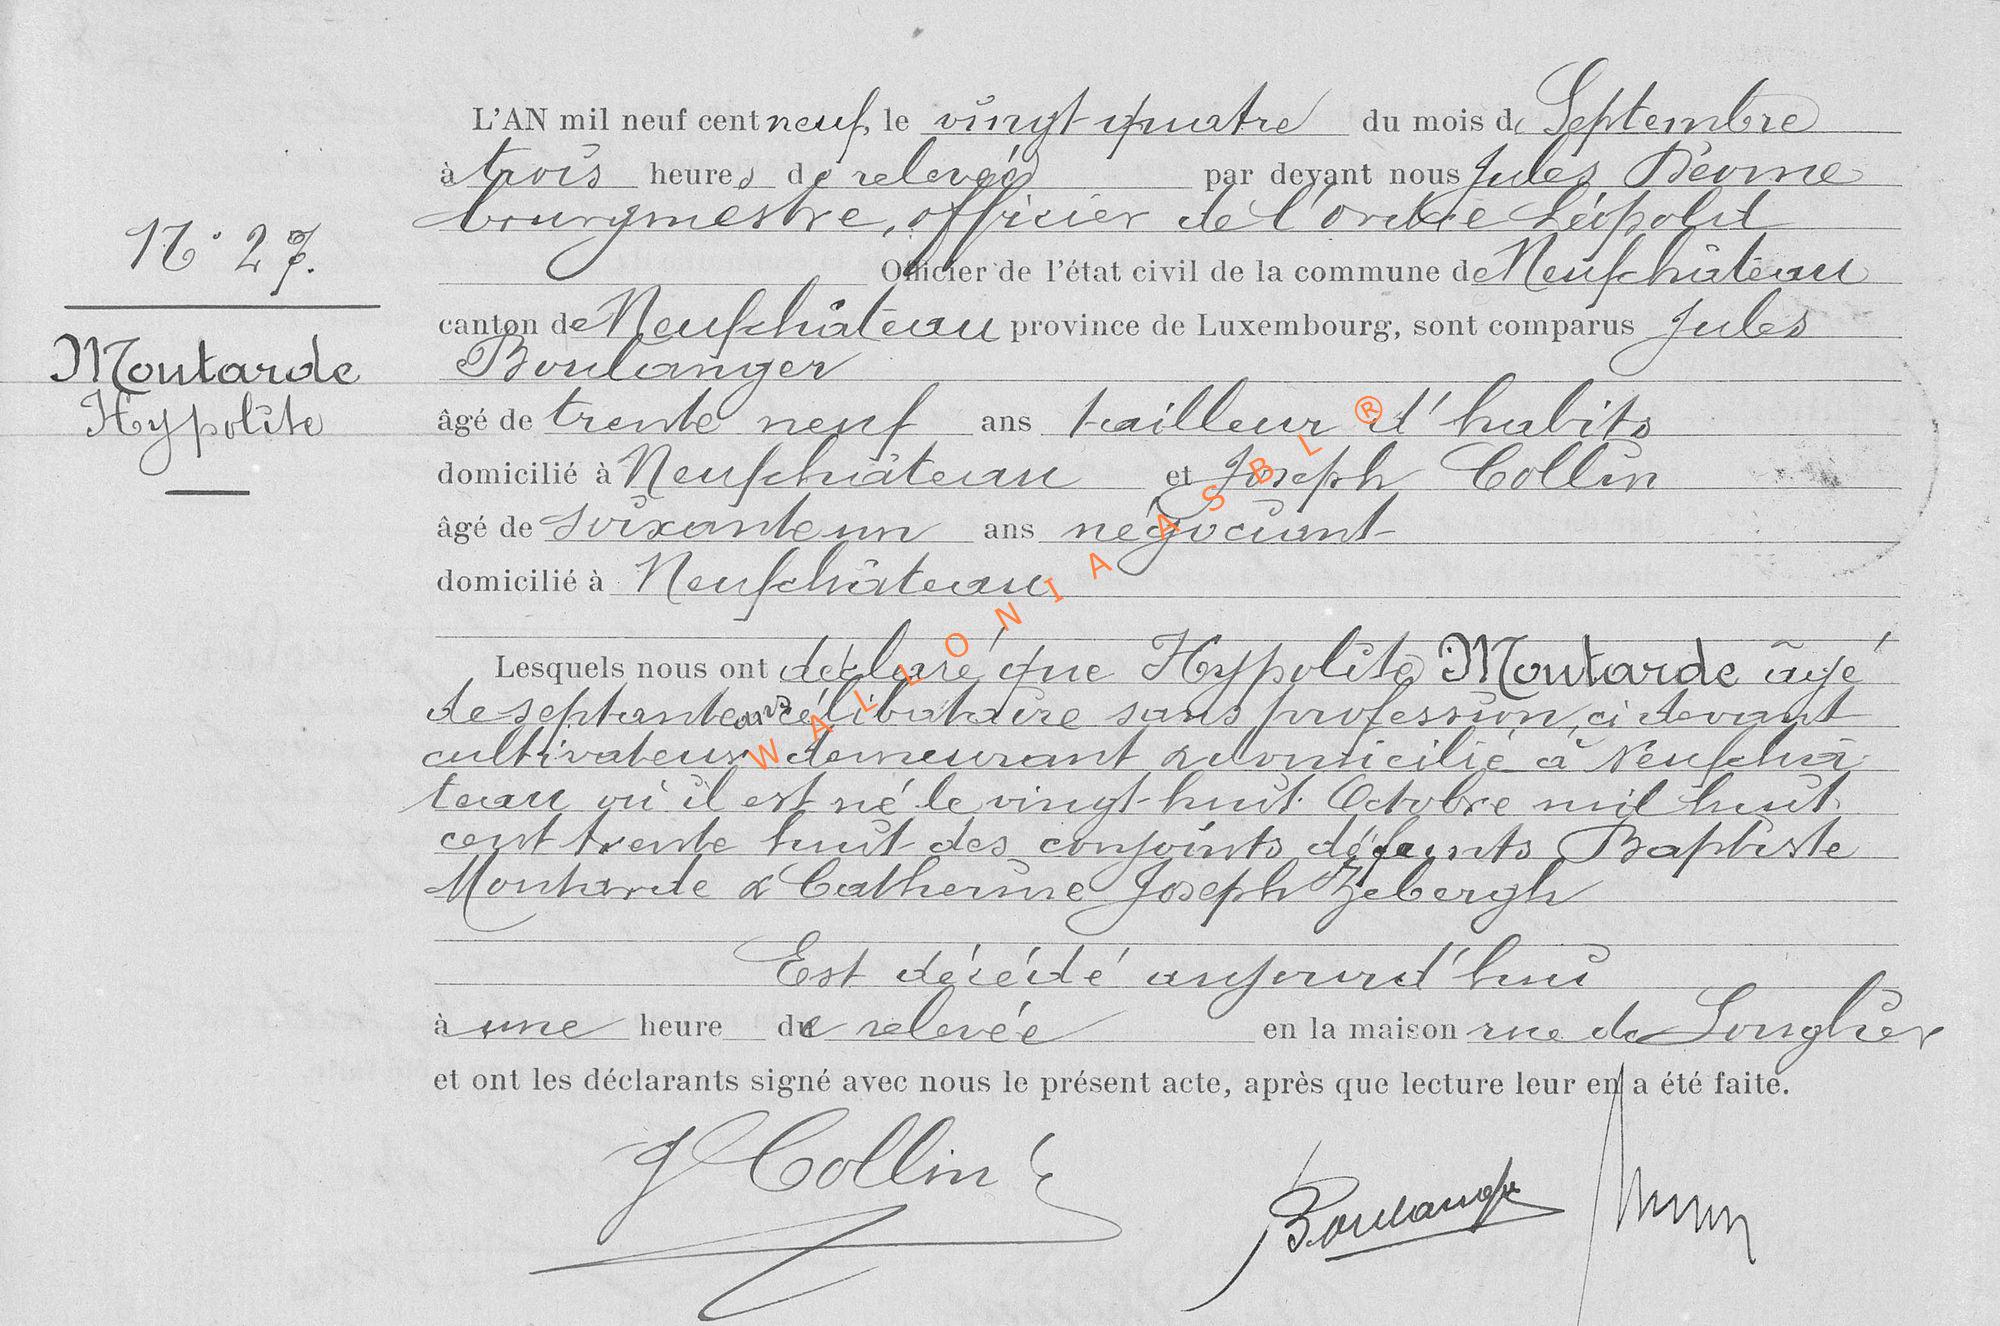 L'AN mil neuf cent neuf, le vingt quatre du mois de Septembre
à trois heures de relevée par devant nous Jules
bourgmestre, officier de l'ordre Léopold
Officier de l'état civil de la commune de Neufchâteau
N° 27.
canton de Neufchâteau province de Luxembourg, sont comparus Jules
Boulanger
Moutarde
Hypolite
âgé de trente neuf ans tailleur d'habits
domicilié à Neufchâteau et Joseph Collin
âgé de soixante un ans négociant
domicilié à Neufchâteau
Lesquels nous ont déclaré que Hypolite Moutarde âgé
de septante ans célibataire sans profession, ci devant
cultivateur demeurant & domicilié à Neufchâ-
teau où il est né le vingt-huit Octobre mil huit
cent trente huit des conjoints défunts Baptiste
Moutarde & Catherine Joseph Zebergh
Est décédé aujourd'hui
à une heure de relevée en la maison rue de Longlier
et ont les déclarants signé avec nous le présent acte, après que lecture leur en a été faite.
J Collin
Boulanger
WALLONIA ASBL ®